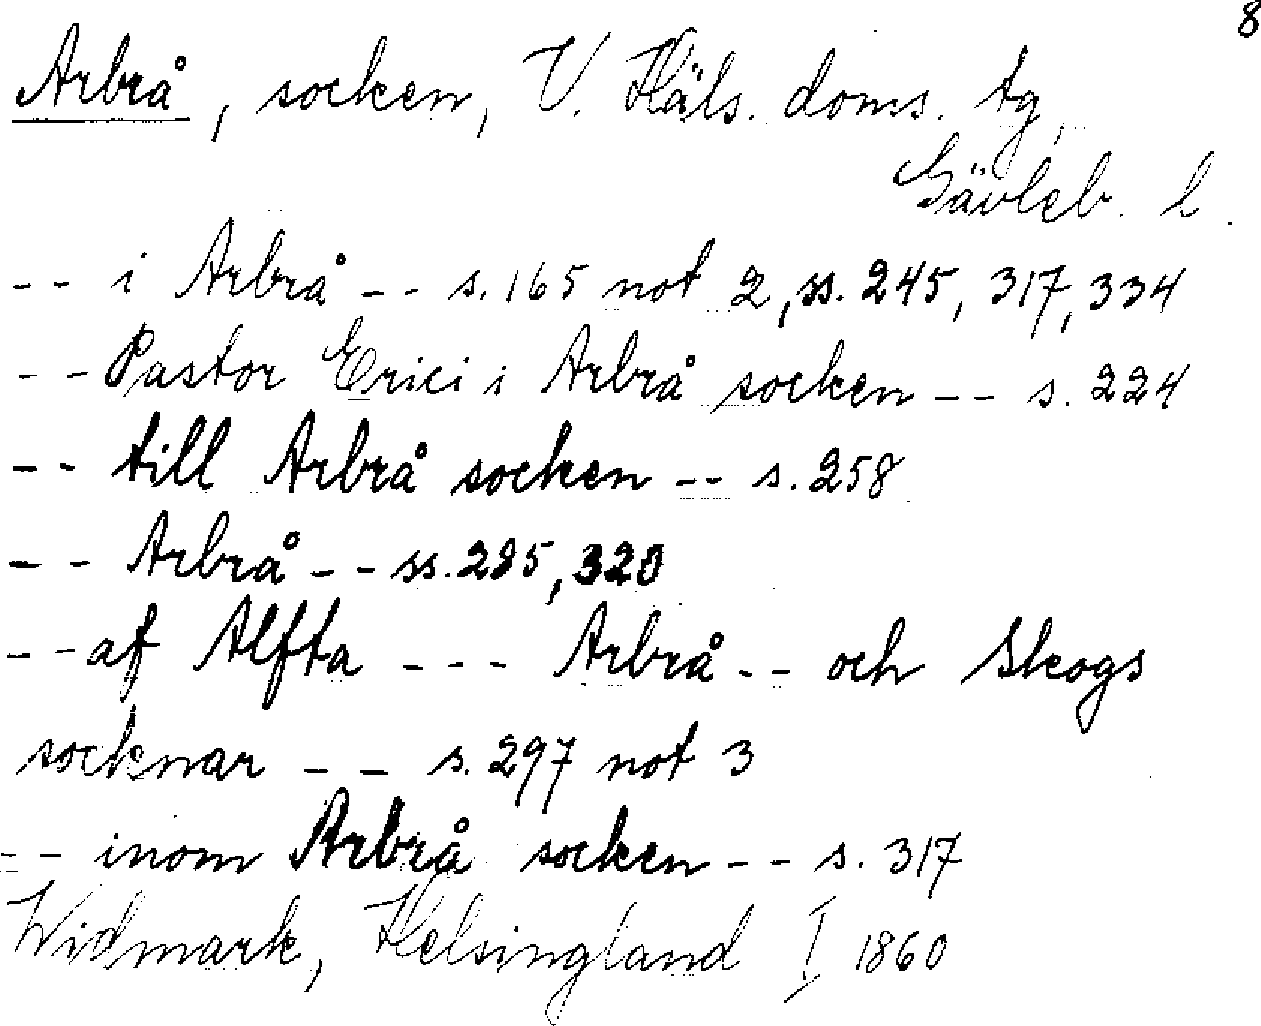 8
Arbrå, socken, V. Häls. doms. tg,
Gävleb. l.
-- i Arbrå -- s. 165 not 2, ss. 245, 317, 334
-- Pastor Erici i Arbrå socken -- s. 224
-- till Arbrå socken -- s. 258
-- Arbrå -- ss. 285, 320
-- af Alfta --- Arbrå -- och Skogs
socknar -- s. 297 not 3
-- inom Arbrå socken -- s. 317
Widmark, Helsingland I 1860